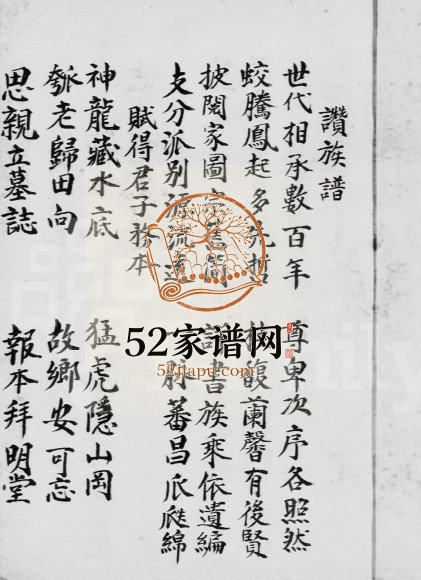 讚族譜
世代相承數百年 尊卑次序各照然
蛟騰鳳起多先哲 馥蘭馨有後賢
披閱家圖 簡 書族乘依遺編
支分派别源流遠 脉蕃昌瓜瓞綿
賦得君子務本
神龍藏水底 猛虎隱山岡
老歸田向 故鄉安可忘
思親立墓誌 報本拜明堂
52家谱网
52jiapu.com